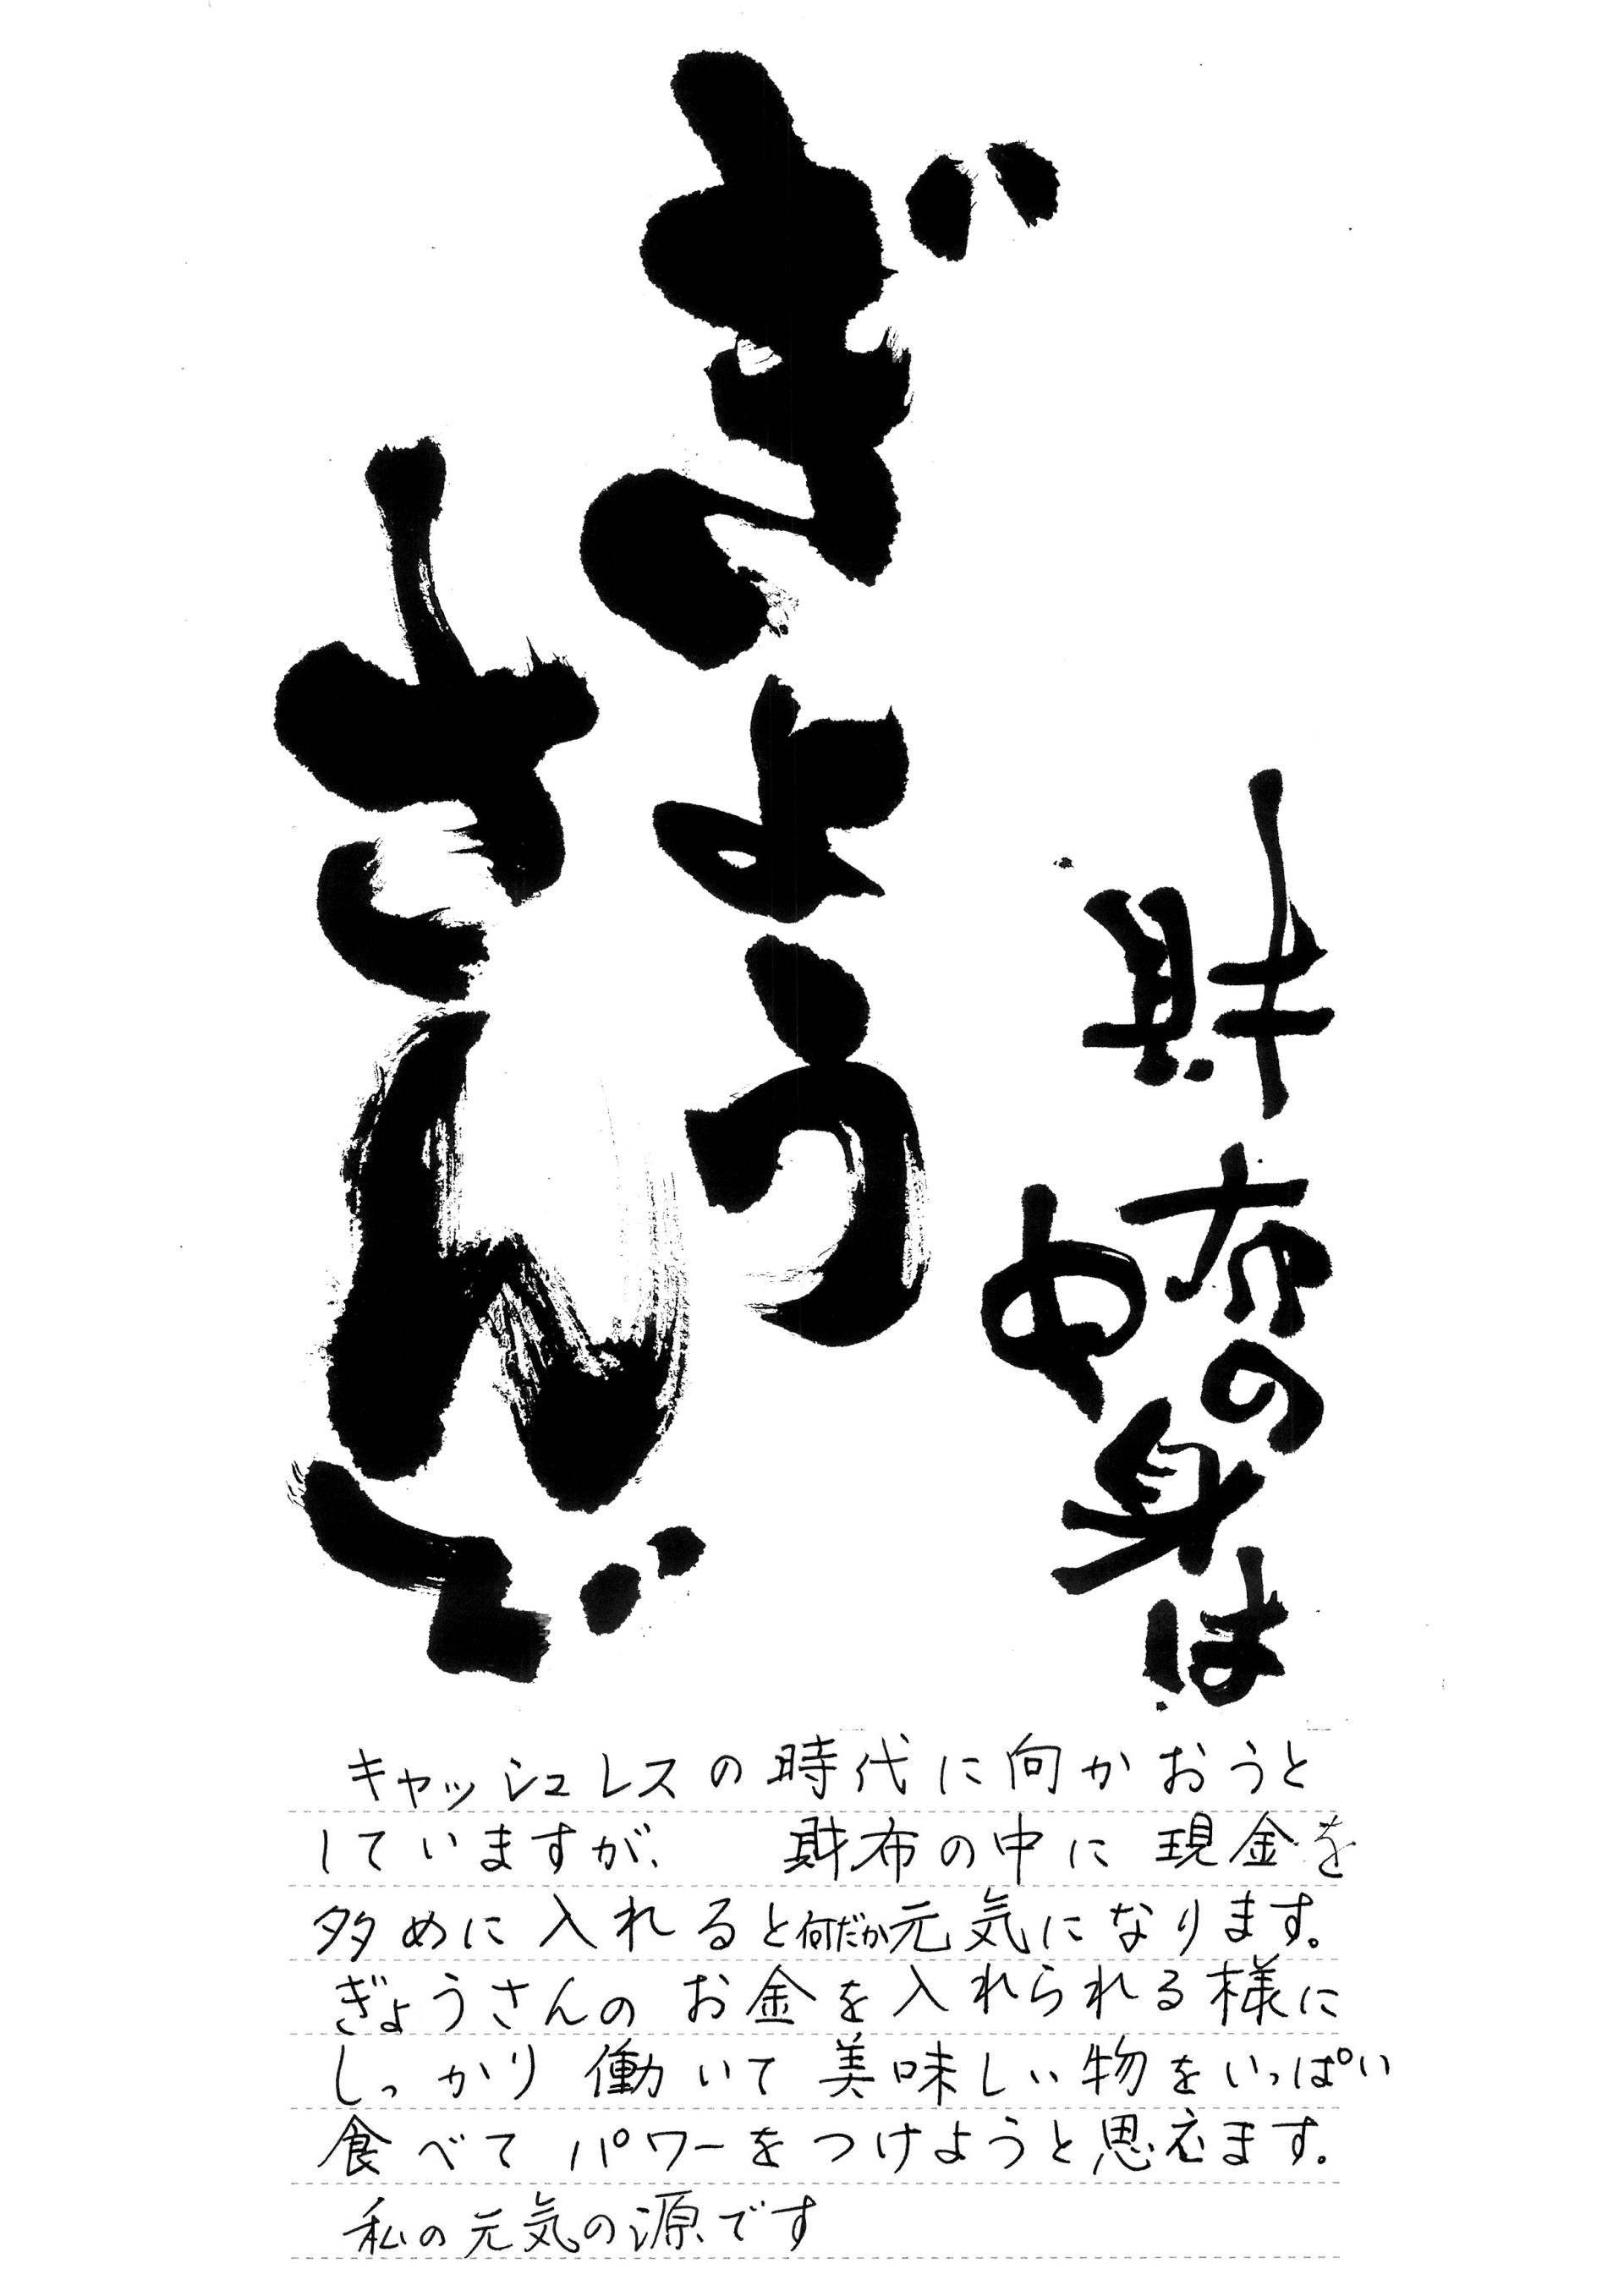 財布の中身は
ぎょう
さんで
キャッシュレスの時代に向かおうと
していますが、 財布の中に 現金を
多めに入れると何だか元気になります。
ぎょうさんの お金を入れられる様に
しっかり 働いて 美味しい物をいっぱい
食べて パワーをつけようと思えます。
私の元気の源です